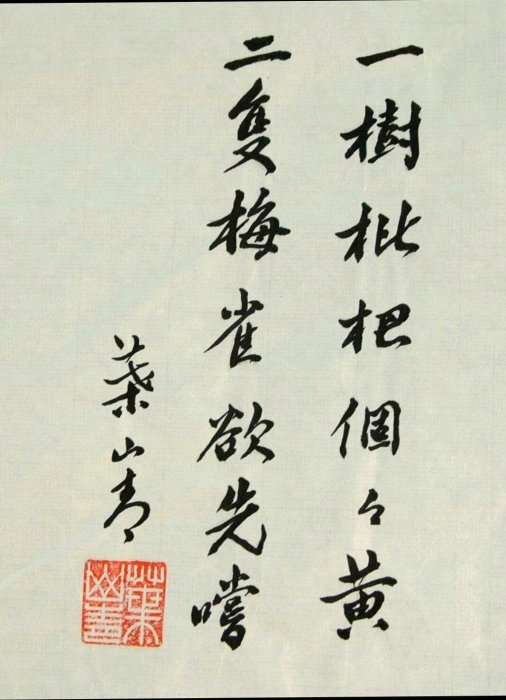 一樹枇杷個々黄
二隻梅雀欲先嚐
葉山青
葉山青